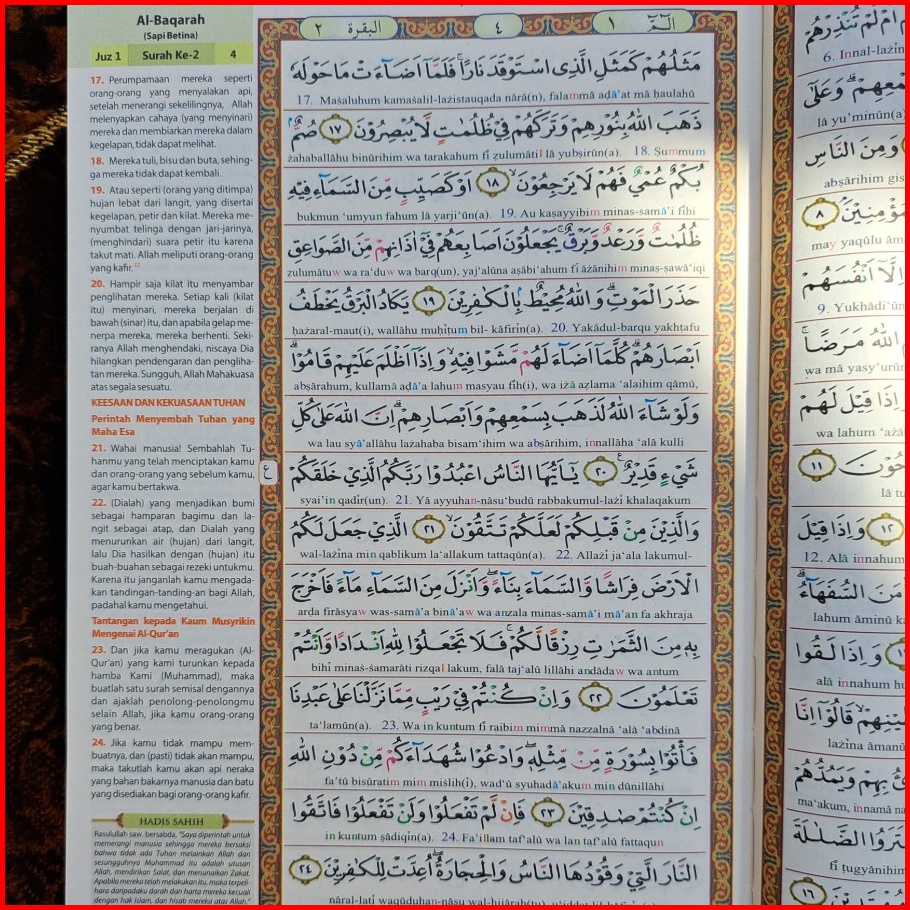 Al-Baqarah
(Sapi Betina)
Juz 1 Surah Ke-2 4
17. Perumpamaan mereka seperti
orang-orang yang menyalakan api,
setelah menerangi sekelilingnya, Allah
melenyapkan cahaya (yang menyinari)
mereka dan membiarkan mereka dalam
kegelapan, tidak dapat melihat.
18. Mereka tuli, bisu dan buta, sehing-
ga mereka tidak dapat kembali.
19. Atau seperti (orang yang ditimpa)
hujan lebat dari langit, yang disertai
kegelapan, petir dan kilat. Mereka me-
nyumbat telinga dengan jari-jarinya,
(menghindari) suara petir itu karena
takut mati. Allah meliputi orang-orang
yang kafir.
20. Hampir saja kilat itu menyambar
penglihatan mereka. Setiap kali (kilat
itu) menyinari, mereka berjalan di
bawah (sinar) itu, dan apabila gelap me-
nerpa mereka, mereka berhenti. Seki-
ranya Allah menghendaki, niscaya Dia
hilangkan pendengaran dan pengliha-
tan mereka. Sungguh, Allah Mahakuasa
atas segala sesuatu.
KEESAAN DAN KEKUASAAN TUHAN
Perintah Menyembah Tuhan yang
Maha Esa
21. Wahai manusia! Sembahlah Tu-
hanmu yang telah menciptakan kamu
dan orang-orang yang sebelum kamu,
agar kamu bertakwa.
22. (Dialah) yang menjadikan bumi
sebagai hamparan bagimu dan la-
ngit sebagai atap, dan Dialah yang
menurunkan air (hujan) dari langit,
lalu Dia hasilkan dengan (hujan) itu
buah-buahan sebagai rezeki untukmu.
Karena itu janganlah kamu mengada-
kan tandingan-tanding-an bagi Allah,
padahal kamu mengetahui.
Tantangan kepada Kaum Musyrikin
Mengenai Al-Qur'an
23. Dan jika kamu meragukan (Al-
Qur'an) yang kami turunkan kepada
hamba Kami (Muhammad), maka
buatlah satu surah semisal dengannya
dan ajaklah penolong-penolongmu
selain Allah, jika kamu orang-orang
yang benar.
24. Jika kamu tidak mampu mem-
buatnya, dan (pasti) tidak akan mampu,
maka takutlah kamu akan api neraka
yang bahan bakarnya manusia dan batu
yang disediakan bagi orang-orang kafir.
HADIS SAHIH
Rasulullah saw. bersabda, "Saya diperintah untuk
memerangi manusia sehingga mereka bersaksi
bahwa tidak ada Tuhan melainkan Allah dan
sesungguhnya Muhammad itu adalah utusan
Allah, mendirikan Salat, dan menunaikan Zakat.
Apabila mereka telah melakukan itu, maka terpeli-
hara daripadaku darah dan harta mereka kecuali
dengan hak Islam, dan hisab mereka atas Allah."
الۤمّۤ ١ ٤ البقرة ٢
مَثَلُهُمْ كَمَثَلِ الَّذِى اسْتَوْقَدَ نَارًاۚ فَلَمَّآ اَضَاۤءَتْ مَا حَوْلَهٗ
17. Maṡaluhum kamaṡalil-lażistauqada nārā(n), falammā aḍā'at mā ḥaulahū
ذَهَبَ اللّٰهُ بِنُوْرِهِمْ وَتَرَكَهُمْ فِيْ ظُلُمٰتٍ لَّا يُبْصِرُوْنَ ١٧ صُمٌّۢ
żahaballāhu binūrihim wa tarakahum fī ẓulumātil lā yubṣirūn(a). 18. Ṣummum
بُكْمٌ عُمْيٌ فَهُمْ لَا يَرْجِعُوْنَۙ ١٨ اَوْ كَصَيِّبٍ مِّنَ السَّمَاۤءِ فِيْهِ
bukmun 'umyun fahum lā yarji'ūn(a). 19. Au kaṣayyibim minas-samā'i fīhi
ظُلُمٰتٌ وَّرَعْدٌ وَّبَرْقٌۚ يَجْعَلُوْنَ اَصَابِعَهُمْ فِيْٓ اٰذَانِهِمْ مِّنَ الصَّوَاعِقِ
ẓulumātuw wa ra'duw wa barq(un), yaj'alūna aṣābi'ahum fī āżānihim minaṣ-ṣawā'iqi
حَذَرَ الْمَوْتِۗ وَاللّٰهُ مُحِيْطٌۢ بِالْكٰفِرِيْنَ ١٩ يَكَادُ الْبَرْقُ يَخْطَفُ
ḥażaral-maut(i), wallāhu muḥīṭum bil- kāfirīn(a). 20. Yakādul-barqu yakhṭafu
اَبْصَارَهُمْۗ كُلَّمَآ اَضَاۤءَ لَهُمْ مَّشَوْا فِيْهِۙ وَاِذَآ اَظْلَمَ عَلَيْهِمْ قَامُوْاۗ
abṣārahum, kullamā aḍā'a lahum masyau fīh(i), wa iżā aẓlama 'alaihim qāmū,
وَلَوْ شَاۤءَ اللّٰهُ لَذَهَبَ بِسَمْعِهِمْ وَاَبْصَارِهِمْۗ اِنَّ اللّٰهَ عَلٰى كُلِّ
wa lau syā'allāhu lażahaba bisam'ihim wa abṣārihim, innallāha 'alā kulli
شَيْءٍ قَدِيْرٌ ٢٠ يٰٓاَيُّهَا النَّاسُ اعْبُدُوْا رَبَّكُمُ الَّذِيْ خَلَقَكُمْ
syai'in qadīr(un). 21. Yā ayyuhan-nāsu'budū rabbakumul-lażī khalaqakum
وَالَّذِيْنَ مِنْ قَبْلِكُمْ لَعَلَّكُمْ تَتَّقُوْنَۙ ٢١ الَّذِيْ جَعَلَ لَكُمُ
wal-lażīna min qablikum la'allakum tattaqūn(a). 22. Allażī ja'ala lakumul-
الْاَرْضَ فِرَاشًا وَّالسَّمَاۤءَ بِنَاۤءًۖ وَّاَنْزَلَ مِنَ السَّمَاۤءِ مَاۤءً فَاَخْرَجَ
arḍa firāsyaw was-samā'a binā'aw wa anzala minas-samā'i mā'an fa akhraja
بِهٖ مِنَ الثَّمَرٰتِ رِزْقًا لَّكُمْۚ فَلَا تَجْعَلُوْا لِلّٰهِ اَنْدَادًا وَّاَنْتُمْ
bihī minaṡ-ṡamarāti rizqal lakum, falā taj'alū lillāhi andādaw wa antum
تَعْلَمُوْنَ ٢٢ وَاِنْ كُنْتُمْ فِيْ رَيْبٍ مِّمَّا نَزَّلْنَا عَلٰى عَبْدِنَا
ta'lamūn(a). 23. Wa in kuntum fī raibim mimmā nazzalnā 'alā 'abdinā
فَأْتُوْا بِسُوْرَةٍ مِّنْ مِّثْلِهٖۖ وَادْعُوْا شُهَدَاۤءَكُمْ مِّنْ دُوْنِ اللّٰهِ
fa'tū bisūratim mim miṡlih(ī), wad'ū syuhadā'akum min dūnillāhi
اِنْ كُنْتُمْ صٰدِقِيْنَ ٢٣ فَاِنْ لَّمْ تَفْعَلُوْا وَلَنْ تَفْعَلُوْا فَاتَّقُوا
in kuntum ṣādiqīn(a). 24. Fa'illam taf'alū wa lan taf'alū fattaqun
النَّارَ الَّتِيْ وَقُوْدُهَا النَّاسُ وَالْحِجَارَةُۖ اُعِدَّتْ لِلْكٰفِرِيْنَ ٢٤
ع
6. Innal-lażīn
lā yu'minūn(a
وَمِنَ النَّاسِ
abṣārihim gis
٨
may yaqūlu ām
اِلَّآ اَنْفُسَهُمْ
9. Yukhādi'ūn
اللّٰهُ مَرَضًاۚ
wa mā yasy'urūn
اِذَا قِيْلَ لَهُمْ
wa lahum 'ażā
١١
lā tu
١٢ وَاِذَا قِيْلَ
12. Alā innahum
مَنَ السُّفَهَاۤءُۗ
lahum āminū ka
وَاِذَا لَقُوا
alā innahum hu
قَالُوْٓا اِنَّا
lażīna āmanū
وَيَمُدُّهُمْ
ma'akum, innamā na
الضَّلٰلَةَ
fī ṭugyānihim
١٦